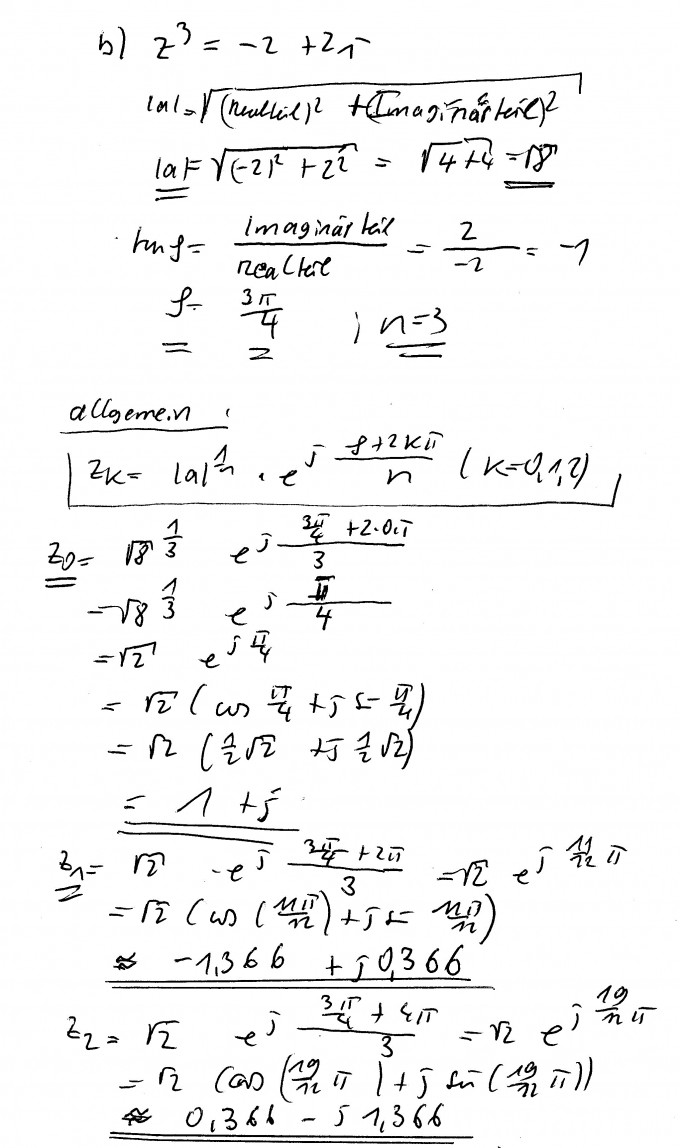 b) z³ = -2 + 2j
|a| = √((Realteil)² + (Imaginärteil)²)
|a| = √((-2)² + 2²) = √(4+4) = √8
tan φ = Imaginärteil / Realteil = 2 / -2 = -1
φ = 3π/4 ; n=3
allgemein:
z_K = |a|^(1/n) · e^(j (φ+2Kπ)/n) (K=0,1,2)
z_0 = √8^(1/3) e^(j (3π/4 + 2·0·π)/3)
= √8^(1/3) e^(j π/4)
= √2 e^(j π/4)
= √2 (cos π/4 + j sin π/4)
= √2 (1/2 √2 + j 1/2 √2)
= 1 + j
z_1 = √2 · e^(j (3π/4 + 2π)/3) = √2 e^(j 11/12 π)
= √2 (cos (11π/12) + j sin 11π/12)
≈ -1,366 + j 0,366
z_2 = √2 e^(j (3π/4 + 4π)/3) = √2 e^(j 19/12 π)
= √2 (cos (19/12 π) + j sin (19/12 π))
≈ 0,366 - j 1,366